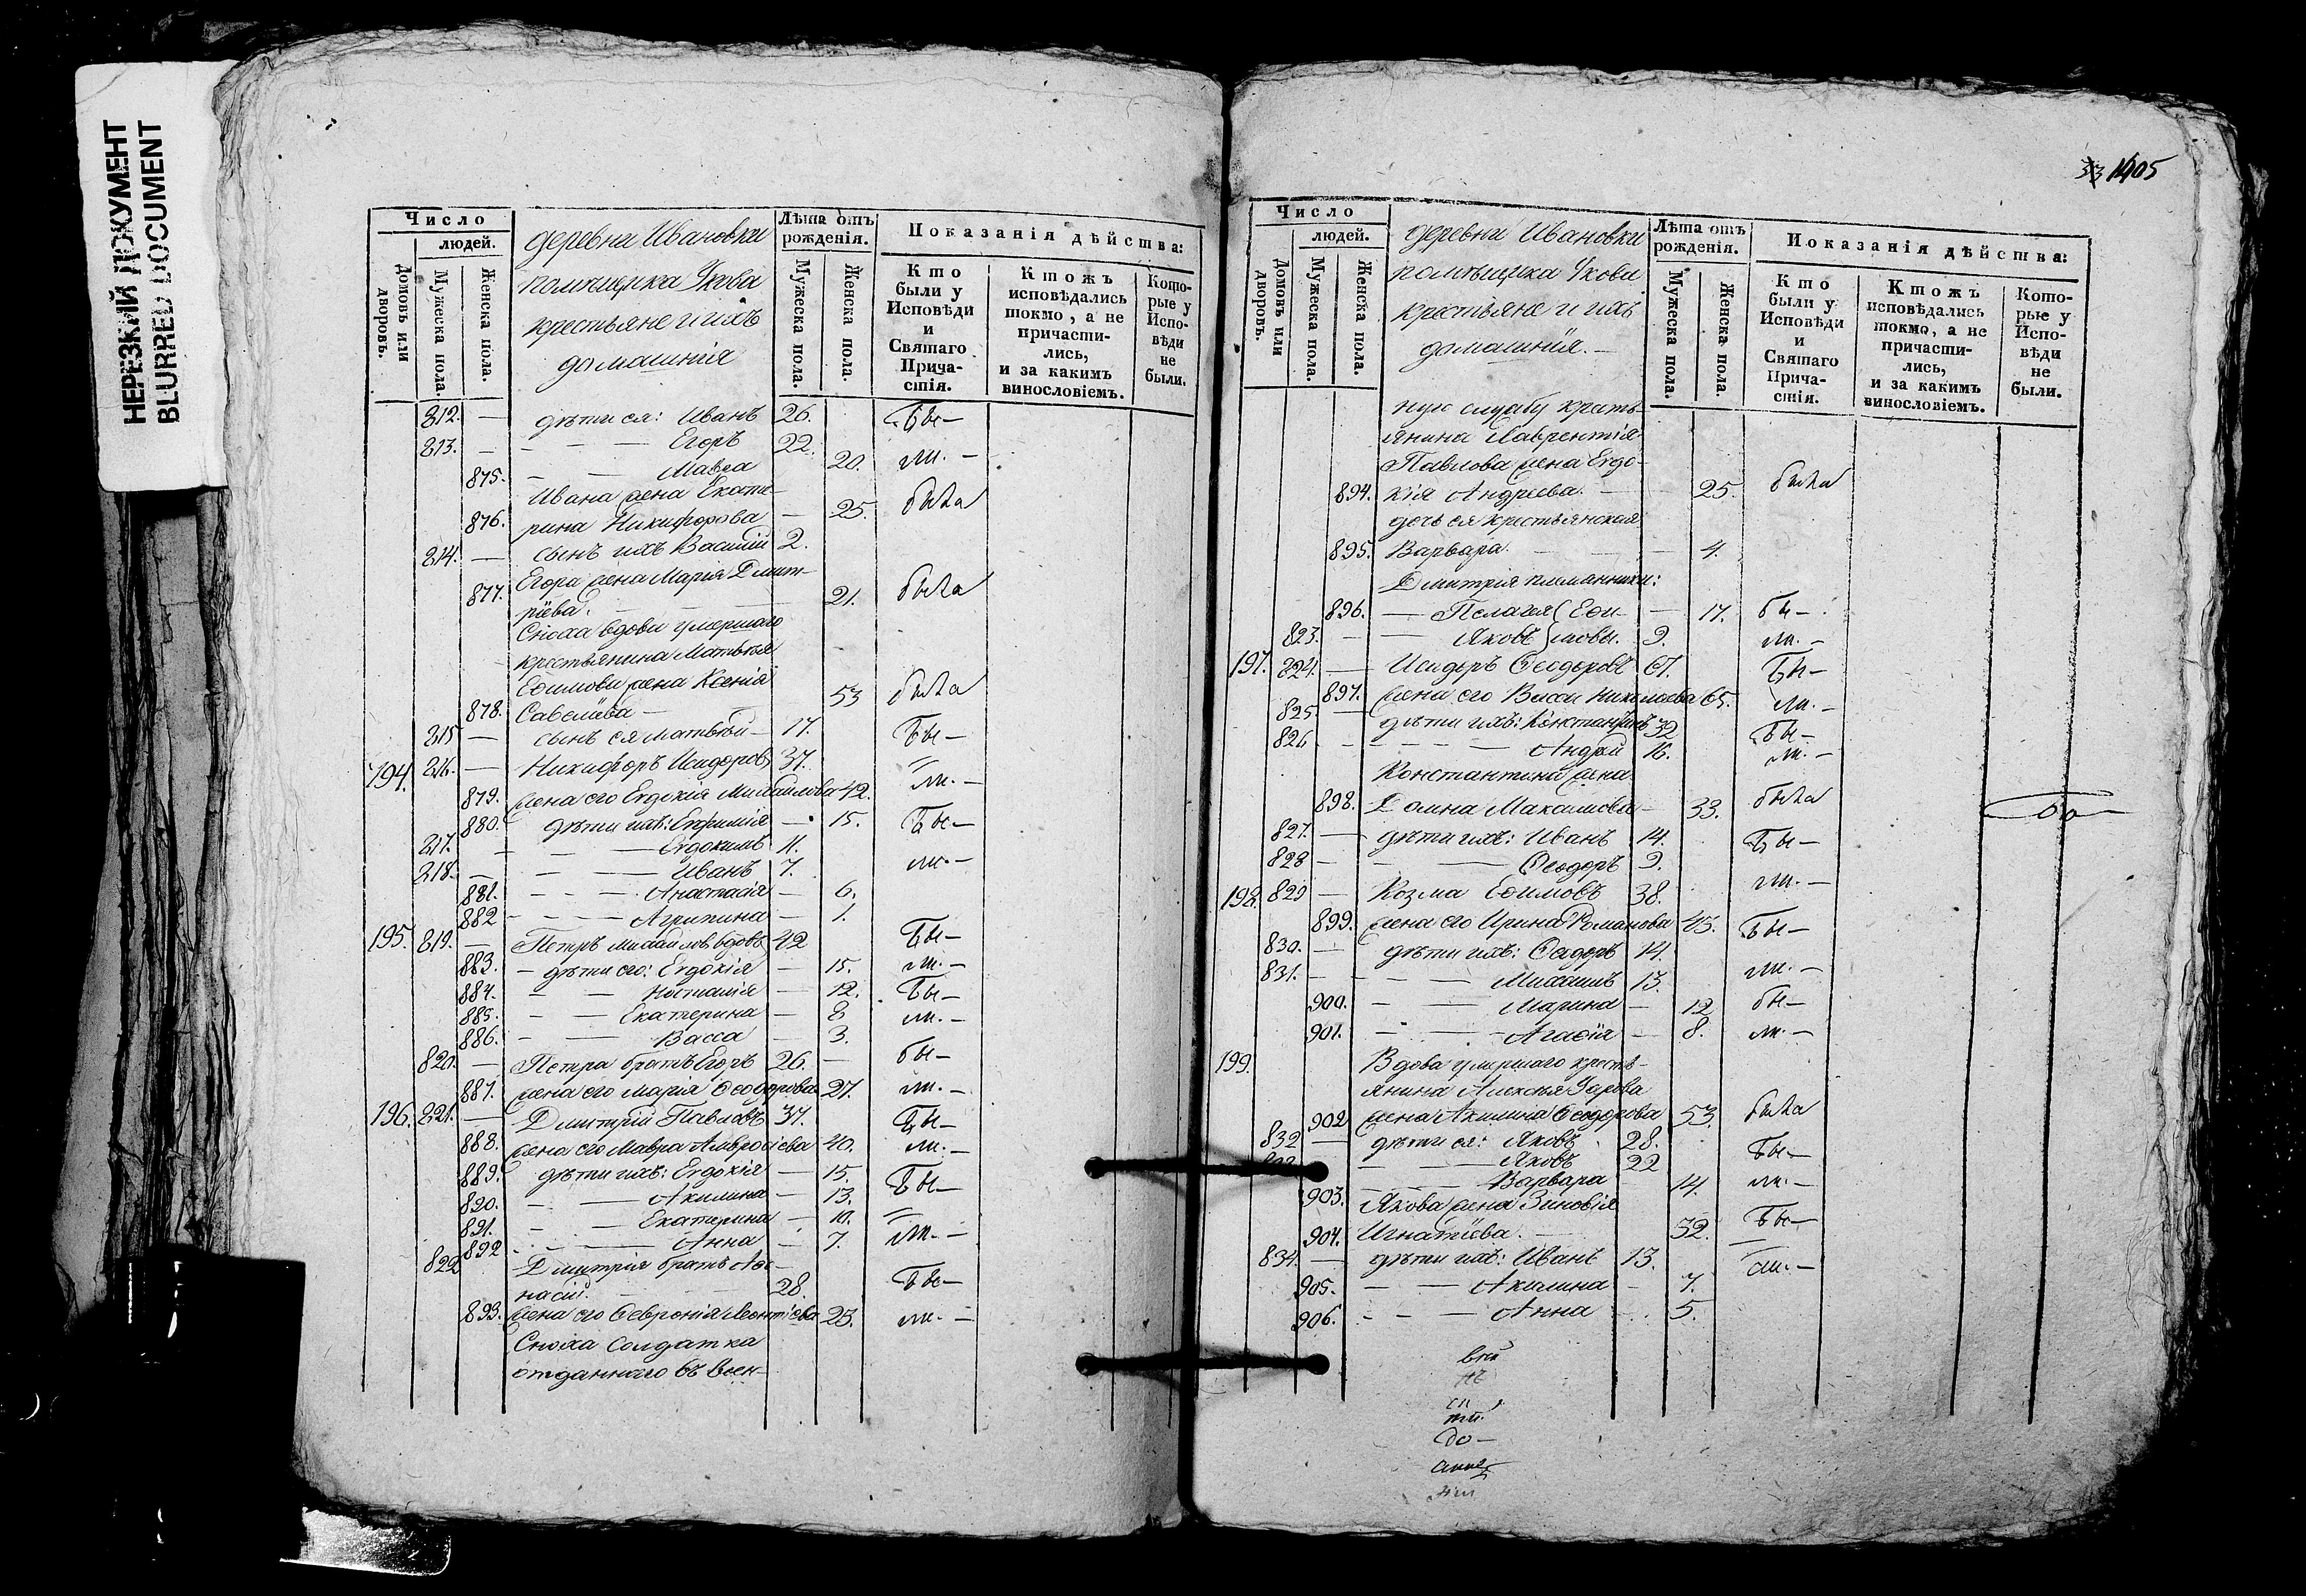 НЕРЕЗКИЙ ДОКУМЕНТ
BLURRED DOCUMENT
Число
людей.
Домовъ или дворовъ.
Мужеска пола.
Женска пола.
деревни Ивановки
помѣщика
крестьяне и ихъ
домашнія
Лѣта отъ рожденія.
Мужеска пола.
Женска пола.
Показанія дѣйства:
Кто были у Исповѣди и Святаго Причастія.
Ктожъ исповѣдались токмо, а не причастились, и за какимъ винословіемъ.
Которые у Исповѣди не были.
812. — дѣти ея: Иванъ 26. Бы—
813. — — — Егоръ 22.
875. — — Мавра 20. ли. —
Ивана жена Екате-
876. рина Никифорова — 25. была
814. — сынъ ихъ Василій 2.
Егора жена Марія Дмит-
877. ріева. — — — 21. была
Сноха вдова умершаго
крестьянина Матвѣя
Ефимова жена Ксенія
878. Савелѵева — — 53 была
815 — сынъ ея Матвѣй — 17. Бы—
194. 816. — Никифоръ Исидоровъ 37.
879. жена его Евдокія Михайлова 42. ли. —
880. дѣти ихъ: Евфимія — 15. Бы—
817. — — — Евдокимъ 11.
818. — — — Иванъ 7. ли. —
881. — — — Анастасія — 6.
882 — — — Агрипина — 1.
195. 819. — Петръ Михайловъ вдовъ 42 Бы—
883. — дѣти его: Евдокія — 15. ли. —
884. — — Наталія — 12. Бы—
885. — — Екатерина — 8 ли. —
886. — — Васса — 3.
820. — Петра братъ Егоръ 26. — бы—
887. жена его Марія Ѳеодорова 27. ли. —
196. 821. — Дмитрій Павловъ 37. Бы—
888. жена его Мавра Амвросіева 40. ли. —
889. дѣти ихъ: Евдокія — 15. Бы—
890. — — Акилина — 13.
891. — — Екатерина — 11.
892 — — Анна — 7. ли. —
822 Дмитрія братъ Аѳа-
насій. — — 28. Бы—
893. жена его Ѳевронія Леонтіева 23. ли. —
Сноха солдатка
отданнаго въ воен-
1405
Число
людей.
Домовъ или дворовъ.
Мужеска пола.
Женска пола.
деревни Ивановки
помѣщика
крестьяне и ихъ
домашнія. —
Лѣта отъ рожденія.
Мужеска пола.
Женска пола
Показанія дѣйства:
Кто были у Исповѣди и Святаго Причастія.
Ктожъ исповѣдались токмо, а не причастились, и за какимъ винословіемъ.
Которые у Исповѣди не были.
ную службу кресть-
янина Лаврентія
Павлова жена Евдо-
894. кія Андреева. — — 25. была
дочь ея крестьянская
895. Варвара. — — — 4.
Дмитрія племянники:
896. — Пелагея Ефи- — 17. бы—
823. — — Яковъ мовы. 9. ли. —
197. 824. — Исидоръ Ѳеодоровъ 67. Бы—
897. жена его Васса Николаева 65. ли. —
825. — дѣти ихъ: Константинъ 32 Бы—
826 — — — Андрей 16. ли. —
Константина жена
898. Домна Максимова — 33. была
827. — дѣти ихъ: Иванъ 14. Бы—
828 — — — Ѳеодоръ 9.
198. 829 — Козма Ефимовъ 38. ли. —
899. жена его Ирина Романова 45. Бы—
830. — дѣти ихъ: Сидоръ 14.
831. — — — Михаилъ 13. ли. —
900. — — Марина — 12 бы—
901. — — — Агафія — 8. ли. —
199. Вдова умершаго кресть-
янина Алексѣя
902 жена Акилина Ѳеодорова 53. была
832 — дѣти ея: Яковъ 28.
— — Яковъ 22 Бы—
903. — — Варвара 14. ли. —
Якова жена Зиновія
904. Игнатіева. — 32. Бы—
834. — дѣти ихъ: Иванъ 13. ли. —
905. — — Акилина — 7.
906. — — — Анна — 5.
до—